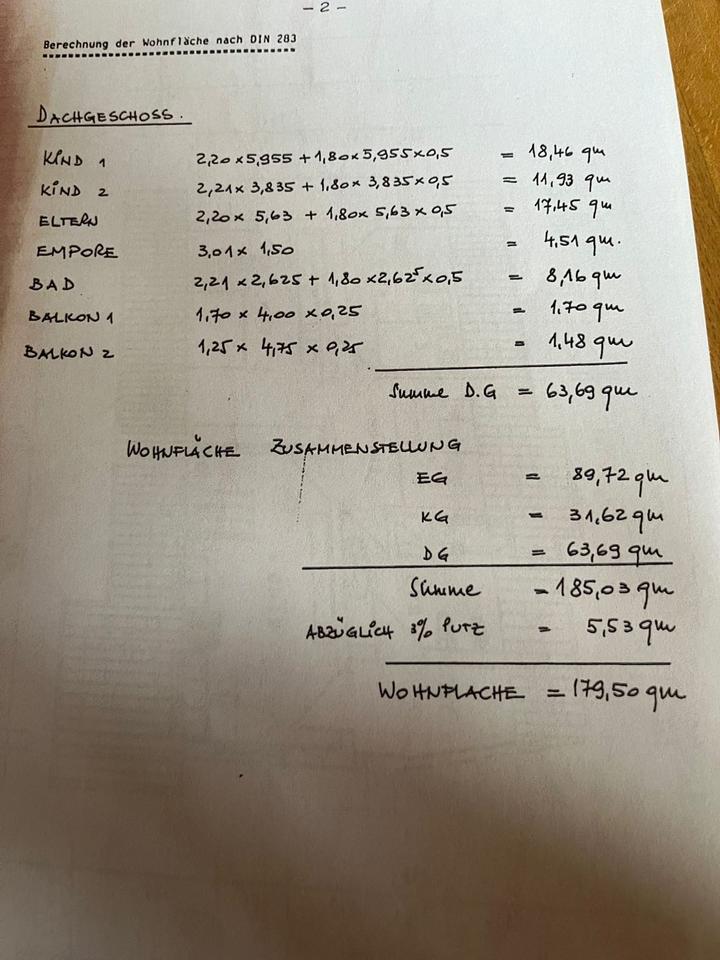 – 2 –
Berechnung der Wohnfläche nach DIN 283
DACHGESCHOSS.
KIND 1 2,20 x 5,955 + 1,80 x 5,955 x 0,5 = 18,46 qm
KIND 2 2,21 x 3,835 + 1,80 x 3,835 x 0,5 = 11,93 qm
ELTERN 2,20 x 5,63 + 1,80 x 5,63 x 0,5 = 17,45 qm
EMPORE 3,01 x 1,50 = 4,51 qm.
BAD 2,21 x 2,625 + 1,80 x 2,625 x 0,5 = 8,16 qm
BALKON 1 1,70 x 4,00 x 0,25 = 1,70 qm
BALKON 2 1,25 x 4,75 x 0,25 = 1,48 qm
Summe D.G = 63,69 qm
WOHNFLÄCHE ZUSAMMENSTELLUNG
EG = 89,72 qm
KG = 31,62 qm
DG = 63,69 qm
Summe = 185,03 qm
ABZÜGLICH 3% PUTZ = 5,53 qm
WOHNFLACHE = 179,50 qm